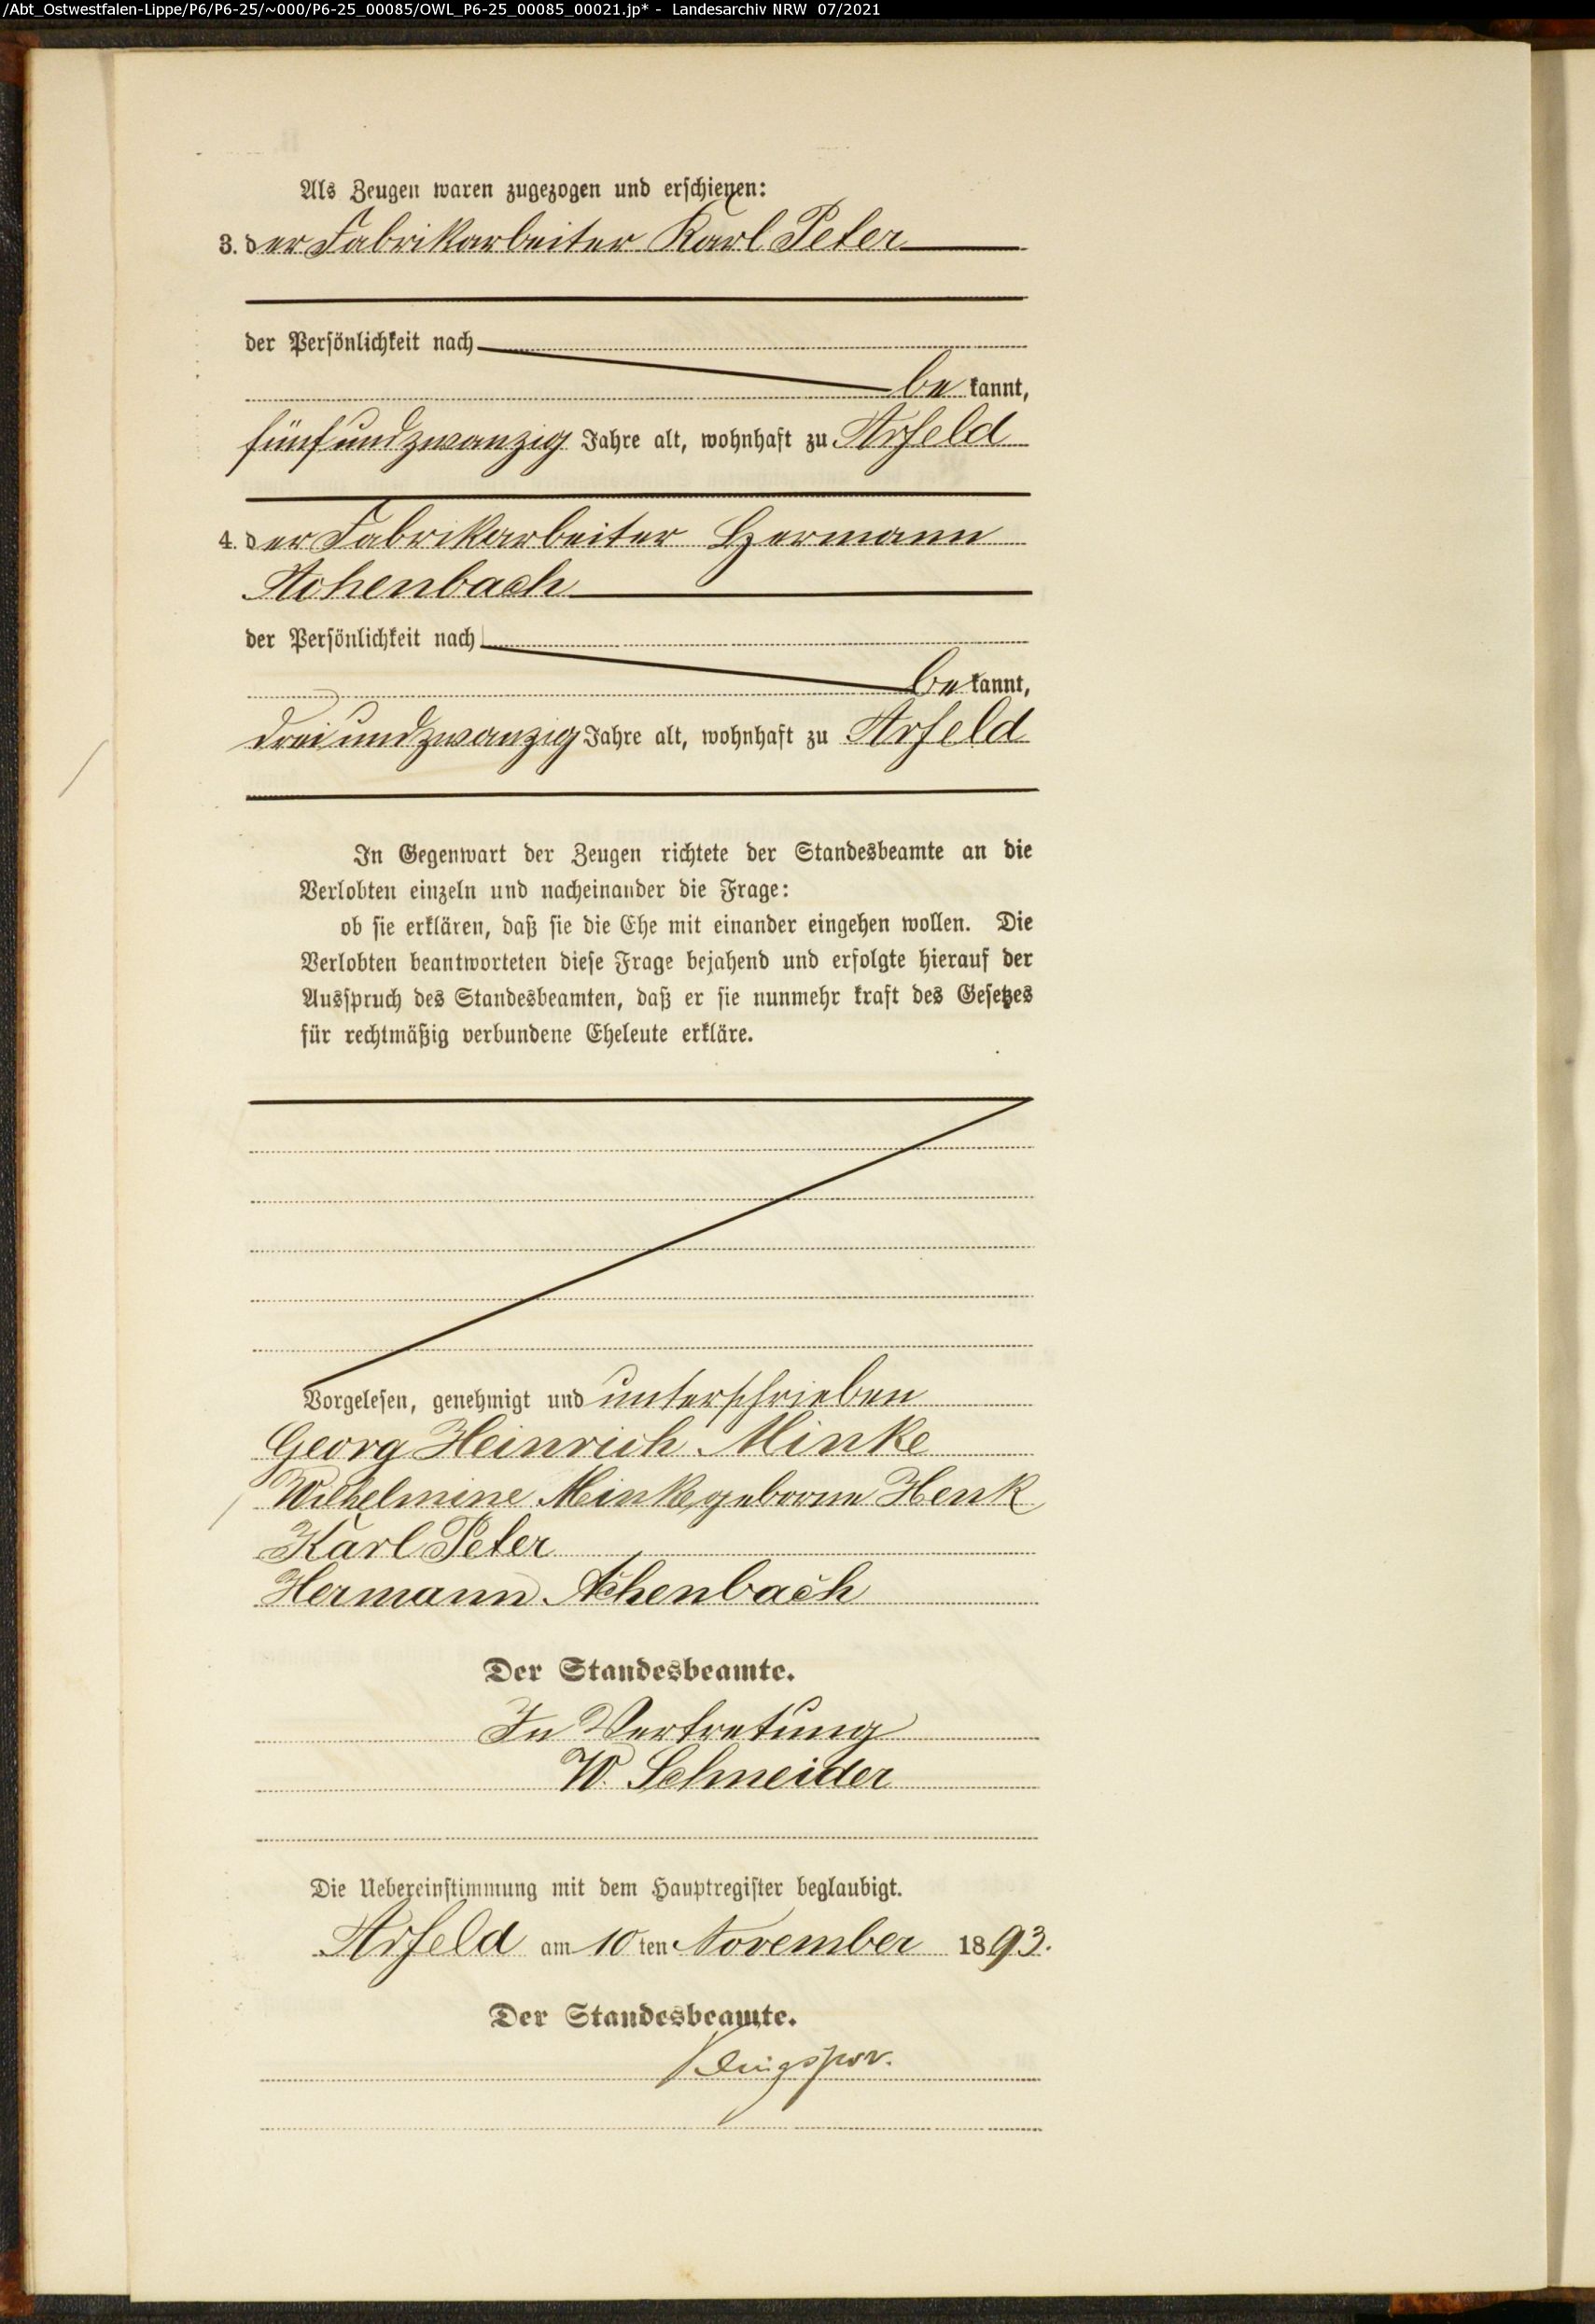 /Abt_Ostwestfalen-Lippe/P6/P6-25/~000/P6-25_00085/OWL_P6-25_00085_00021.jp* - Landesarchiv NRW 07/2021
Als Zeugen waren zugezogen und erschienen:
3. der Fabrikarbeiter Karl Peter
der Persönlichkeit nach
be kannt,
fünfundzwanzig Jahre alt, wohnhaft zu Arfeld
4. der Fabrikarbeiter Hermann
Achenbach
der Persönlichkeit nach
be kannt,
dreiundzwanzig Jahre alt, wohnhaft zu Arfeld
In Gegenwart der Zeugen richtete der Standesbeamte an die
Verlobten einzeln und nacheinander die Frage:
ob sie erklären, daß sie die Ehe mit einander eingehen wollen. Die
Verlobten beantworteten diese Frage bejahend und erfolgte hierauf der
Ausspruch des Standesbeamten, daß er sie nunmehr kraft des Gesetzes
für rechtmäßig verbundene Eheleute erkläre.
Vorgelesen, genehmigt und unterschrieben
Georg Heinrich Minke
Wilhelmine Minke geborne Henk
Karl Peter
Hermann Achenbach
Der Standesbeamte.
In Vertretung
W. Schneider
Die Uebereinstimmung mit dem Hauptregister beglaubigt.
Arfeld am 10 ten November 1893.
Der Standesbeamte.
Klingspor.